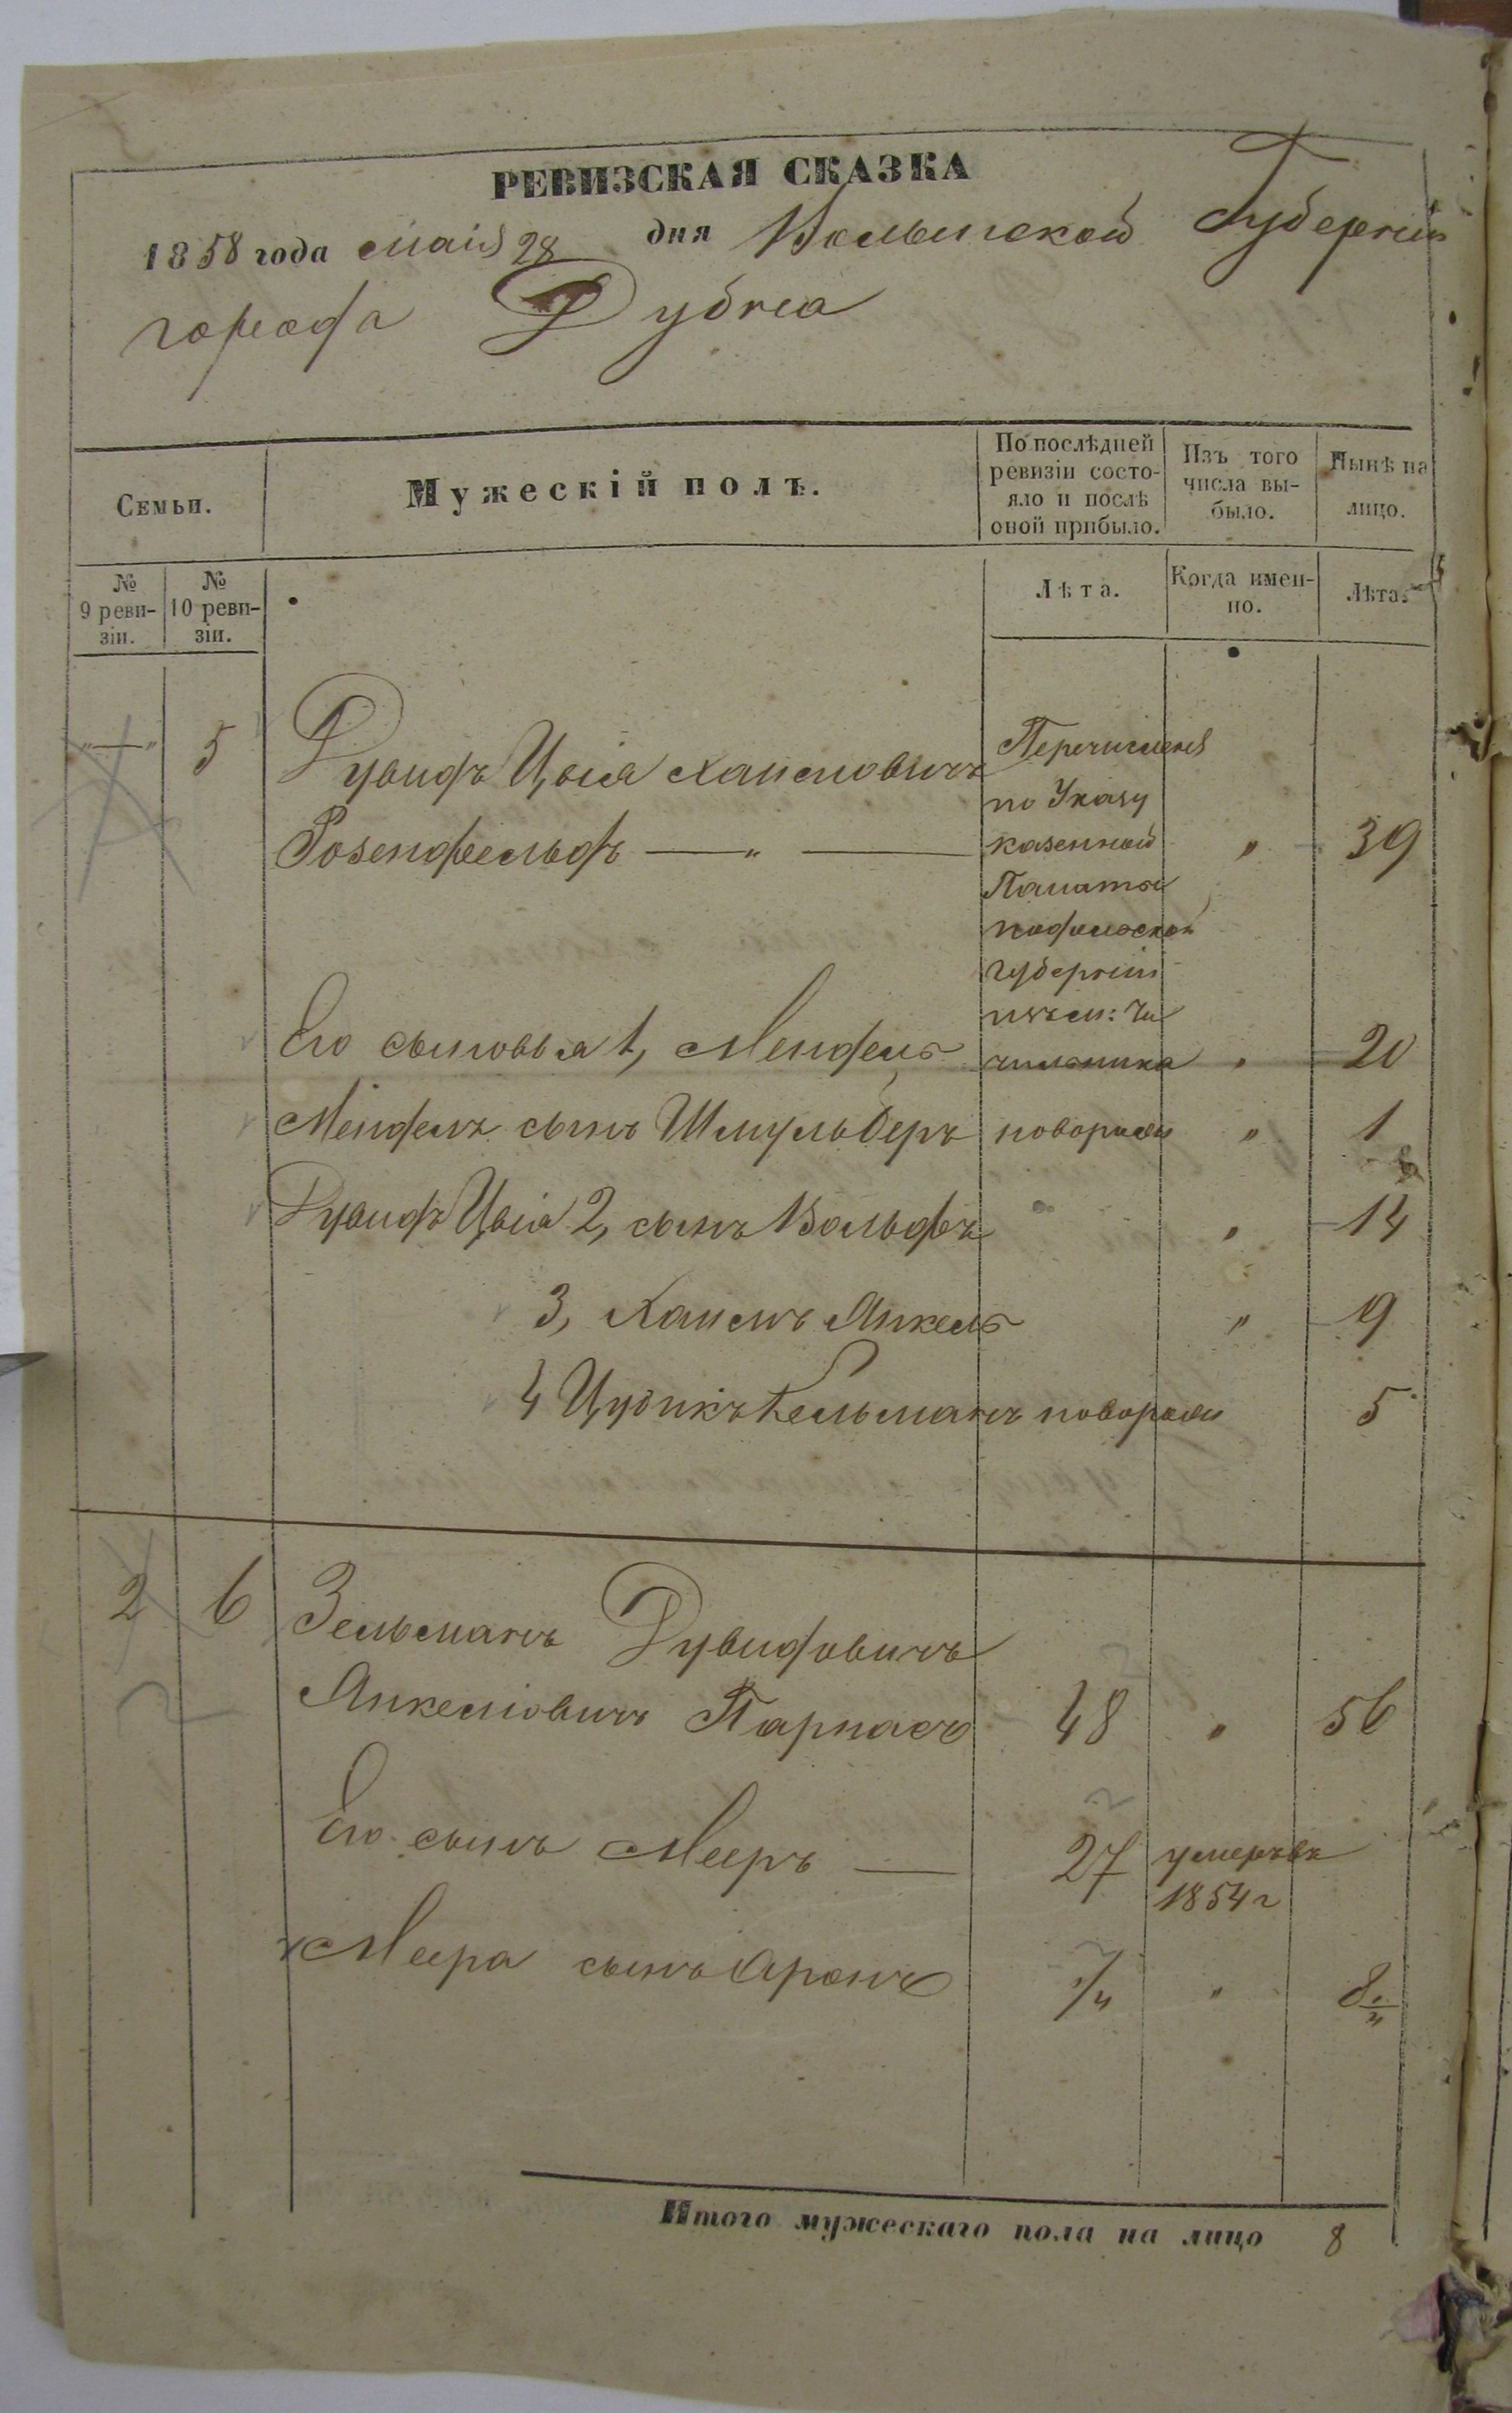 РЕВИЗСКАЯ СКАЗКА
1858 года Маія 28 дня Волынской Губерніи
города Дубна
Семьи.
Мужескій полъ.
По послѣдней ревизіи состо-
яло и послѣ
оной прибыло.
Изъ того
числа вы-
было.
Нынѣ на
лицо.
№
9 реви-
зіи.
№
10 реви-
зіи.
Лѣта.
Когда имен-
но.
Лѣта.
"—" 5 Дувидъ Цвія Хаимовичъ Перечисленъ
по Указу
Розенфельдъ — " — казенной " 39
Палаты
подольской
губерніи
изъ м:
Его сыновья 1, Мендель " 20
Менделя сынъ Шмуль Беръ новорож " 1
Дувидъ Цвія 2, сынъ Вольфъ " " 14
3, Хаимъ Янкель " 9
4 Цудикъ Кельманъ новорож 5
2 6 Зельманъ Дувидовичъ
Янкелiовичъ Парнасъ 48 " 56
Его сынъ Мееръ — 27 умеръ въ
1854 г
Меера сынъ Аронъ 1/4 " 8 1/4
Итого мужескаго пола на лицо 8